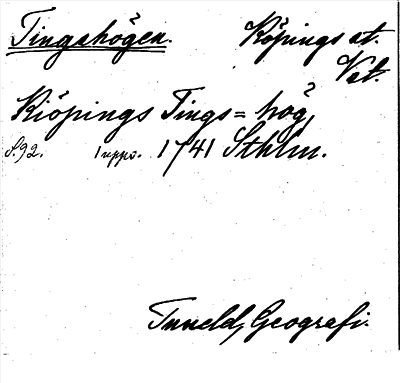 Tingshögen. Köpings st.
Vst.
Kiöpings Tings=hög,
S.92. 1 uppo. 1741 Sthlm.
Tuneld, Geografi.